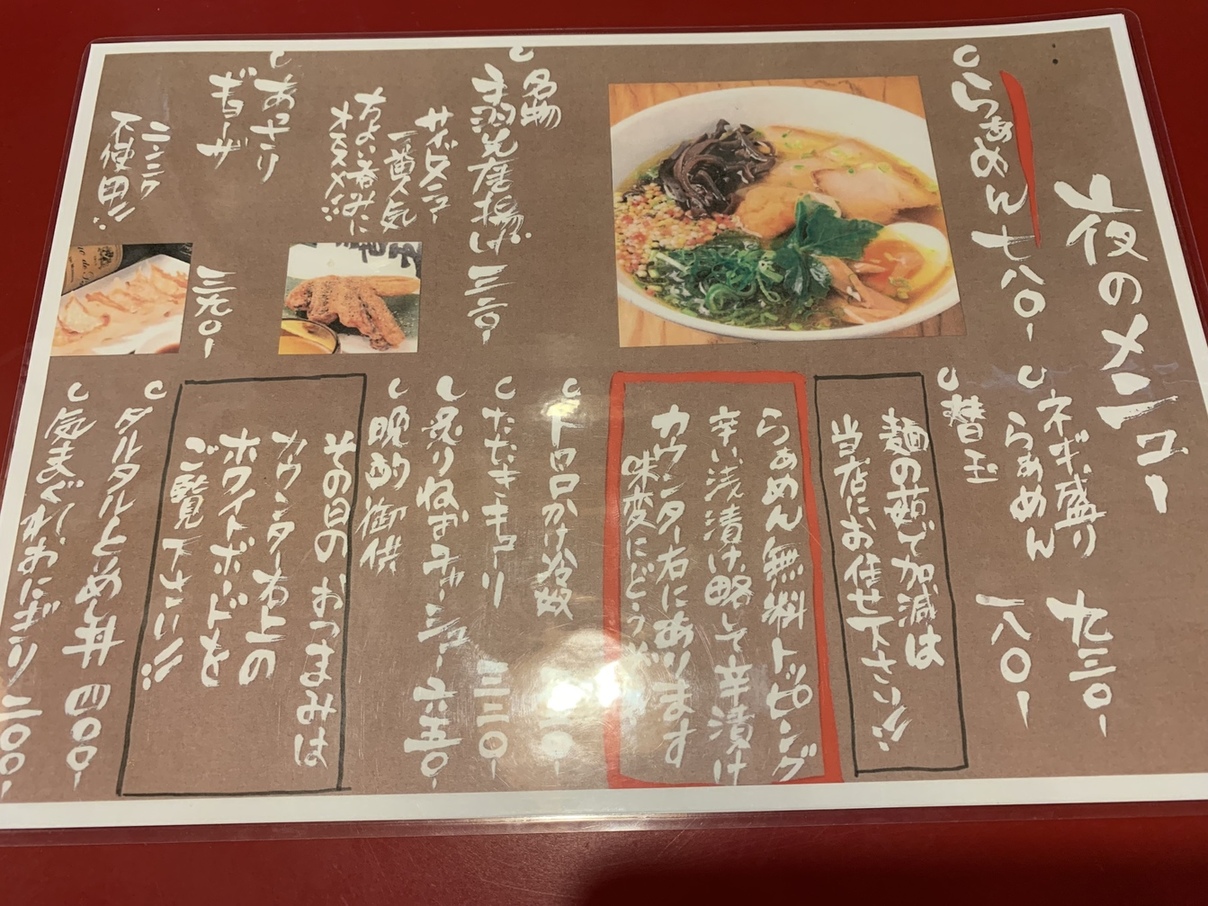 夜のメニュー
らぁめん 七八〇-
ネギ盛り
らぁめん 九三〇-
替玉 一八〇-
麺の茹で加減は
当店にお任せ下さい!!
らぁめん無料トッピング
辛い浅漬け略して辛漬け
カウンター右にあります
味変にどうぞ
名物
手羽先唐揚げ 三三〇-
サイドメニュー
一番人気
ちょい呑みに
オススメ!!
あっさり
ギョーザ 三九〇-
ニンニク
不使用!!
トロロかけ冷奴
たたきキューリ 三三〇-
炙りねぎチャーシュー 六五〇-
晩酌御供
その日のおつまみは
カウンター右上の
ホワイトボードを
ご覧下さい!!
タルタルとりめし丼 四〇〇-
気まぐれおにぎり 二〇〇-